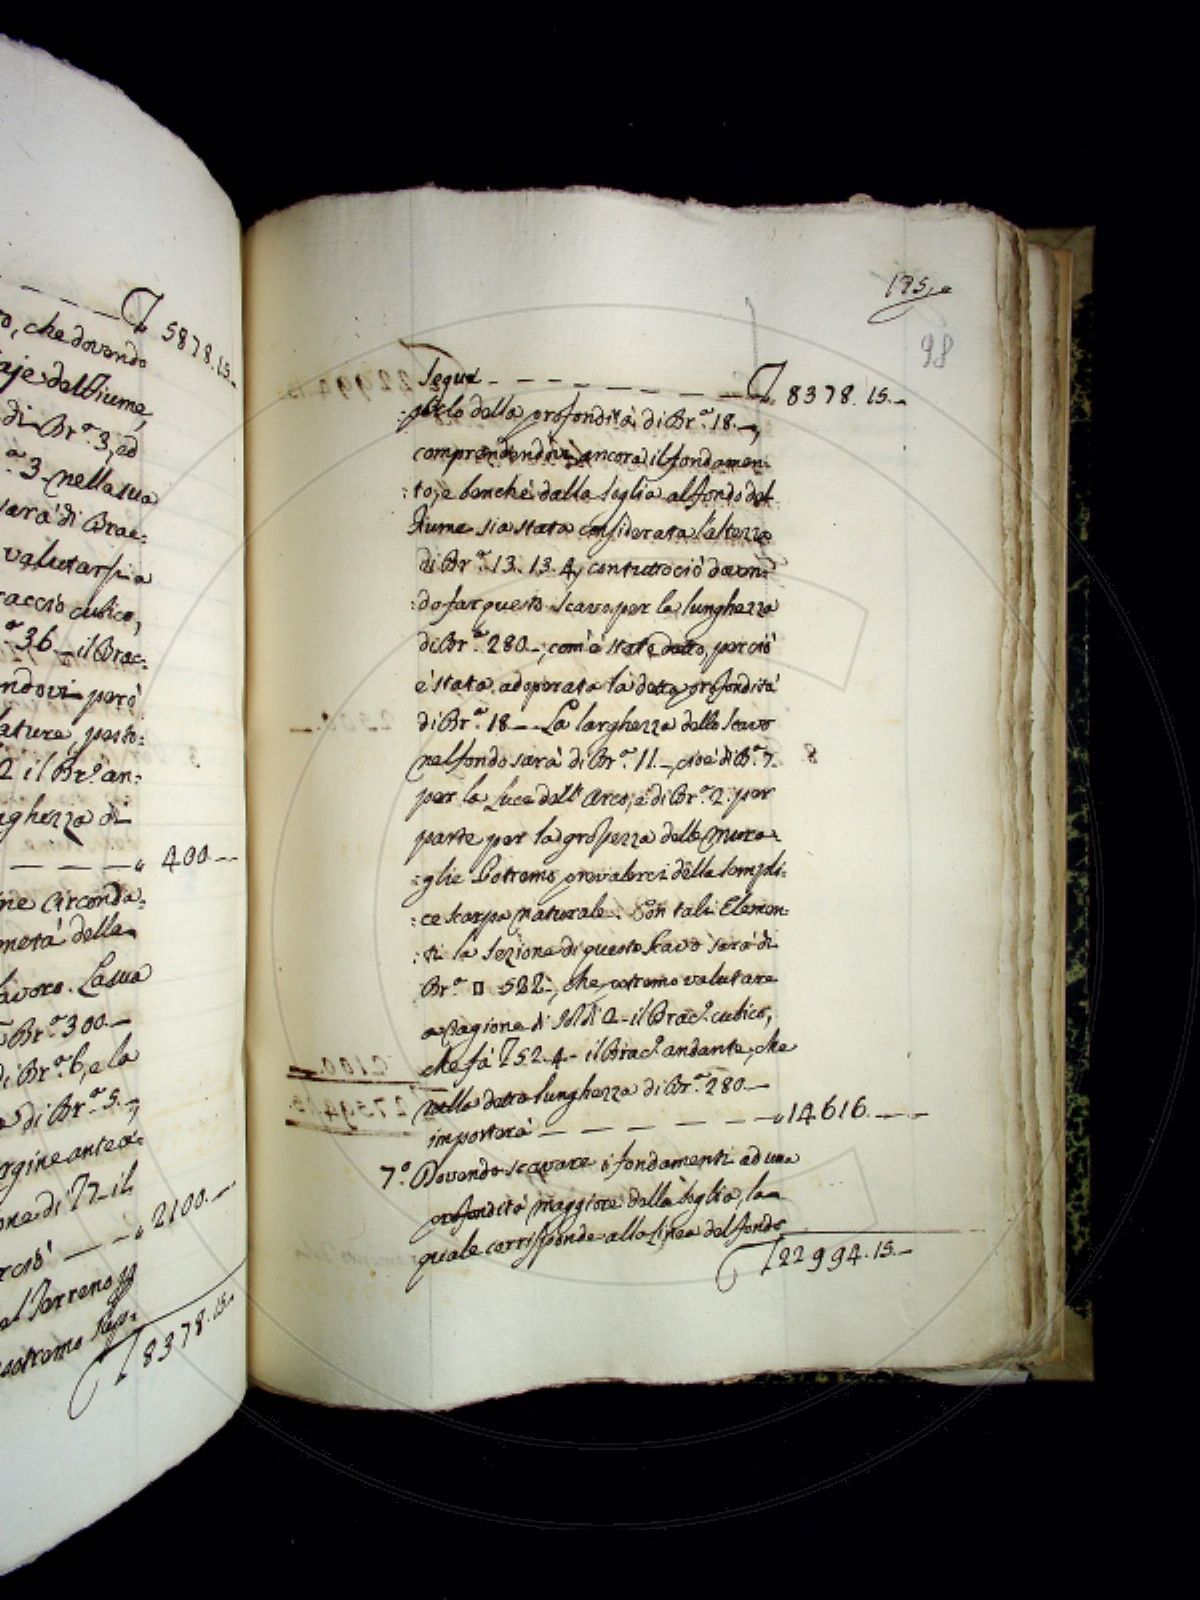 5878.15.-
ro, che dovendo
aje del Fiume,
di Br.ᵃ 3, ed
.ᵃ 3 nella sua
sarà di Brac=
valutarsi a
raccio cubico,
.ᵃ 36 _ il Brac=
ndovi però
lature, posto=
2 il Br.º an=
nghezza di
_ _ _ _ „ 400 _ _
ne circonda=
metà della
lavoro. La sua
Br.ᵃ 300._
di Br.ᵃ 6, e la
a di Br.ᵃ 5._,
rgine antea=
one di 77 _ il
rciò _ _ _ „ 2100. _
al Terreno
potremo
8378.15.
195.
98
Segue _ _ _ _ _ _ _ 8378.15._
pelo della profondità di Br.ᵃ 18._,
comprendendivi ancora il fondamen=
=to, e benchè dalla Soglia al fondo del
Fiume sia stata considerata l'altezza
di Br.ᵃ 13.13.4, contuttociò doven=
=do far questo scavo per la lunghezza
di Br.ᵃ 280_, com'è stato detto, perciò
è stata adoperata la detta profondità
di Br.ᵃ 18 _ La larghezza dello scavo
nel fondo sarà di Br.ᵃ 11._, cioè di B.ᵃ 7.
per la Luce dell'Arco, e di Br.ᵃ 2. per
parte per la grossezza delle Mura=
=glie Potremo prevalerci della sempli=
=ce scarpa naturale. Con tali Elemen=
=ti la Sezione di questo Scavo sarà di
Br.ᵃ □ 522_, che potremo valutare
a ragione di Soldi 2 _ il Brac.º cubico,
che fà 52.4 _ il Brac.º andante, che
nella detta lunghezza di Br.ᵃ 280._
importerà _ _ _ _ _ _ „ 14616. _ _
7.º Dovendo scavare i fondamenti ad una
profondità maggiore della Soglia, la
quale corrisponde alla Linea del fondo
22994.15._